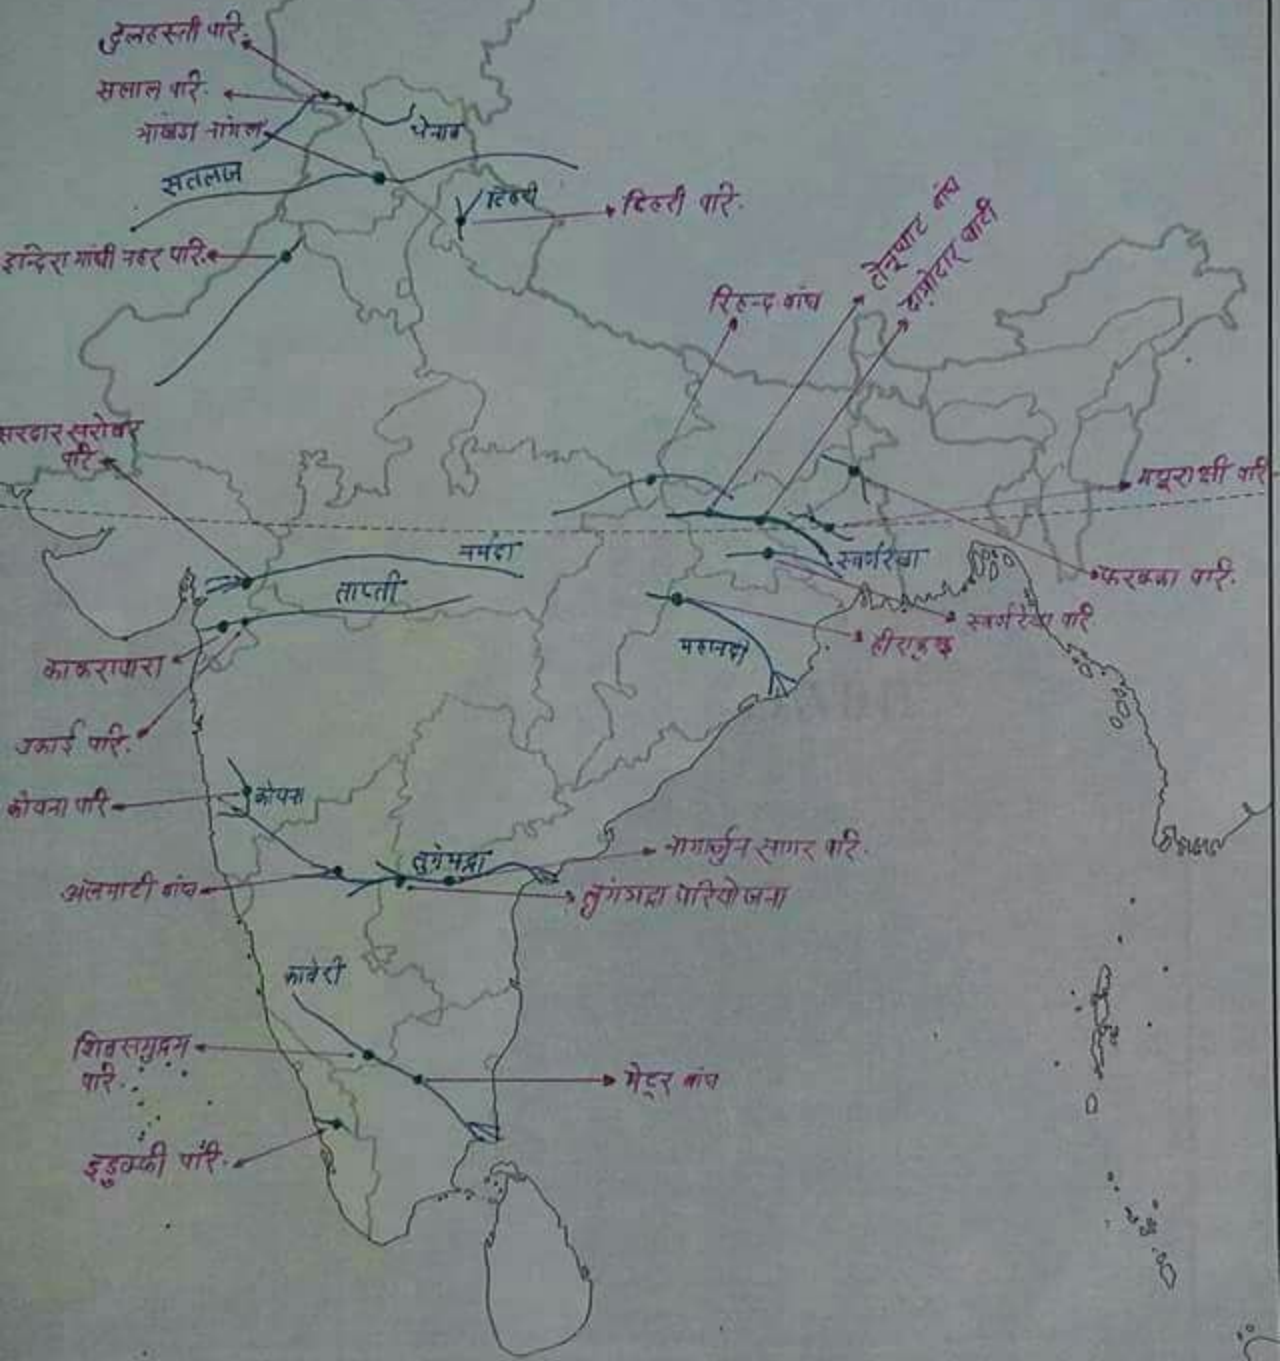 दुलहस्ती परि.
सलाल परि.
भाखडा नांगल
चेनाब
सतलज
टिहरी
टिहरी परि.
इन्दिरा गांधी नहर परि.
रिहन्द बांध
तेनूघाट बांध
दामोदर घाटी
सरदार सरोवर
परि.
मयूराक्षी परि.
नर्मदा
ताप्ती
स्वर्णरेखा
फरक्का परि.
स्वर्णरेखा परि
हीराकुण्ड
महानदी
काकरापारा
उकाई परि.
कोयना परि
कोयना
तुंगभद्रा
नागार्जुन सागर परि.
अलमाटी बांध
तुंगभद्रा परियोजना
कावेरी
शिवसमुद्रम
परि.
मेटूर बांध
इडुक्की परि.